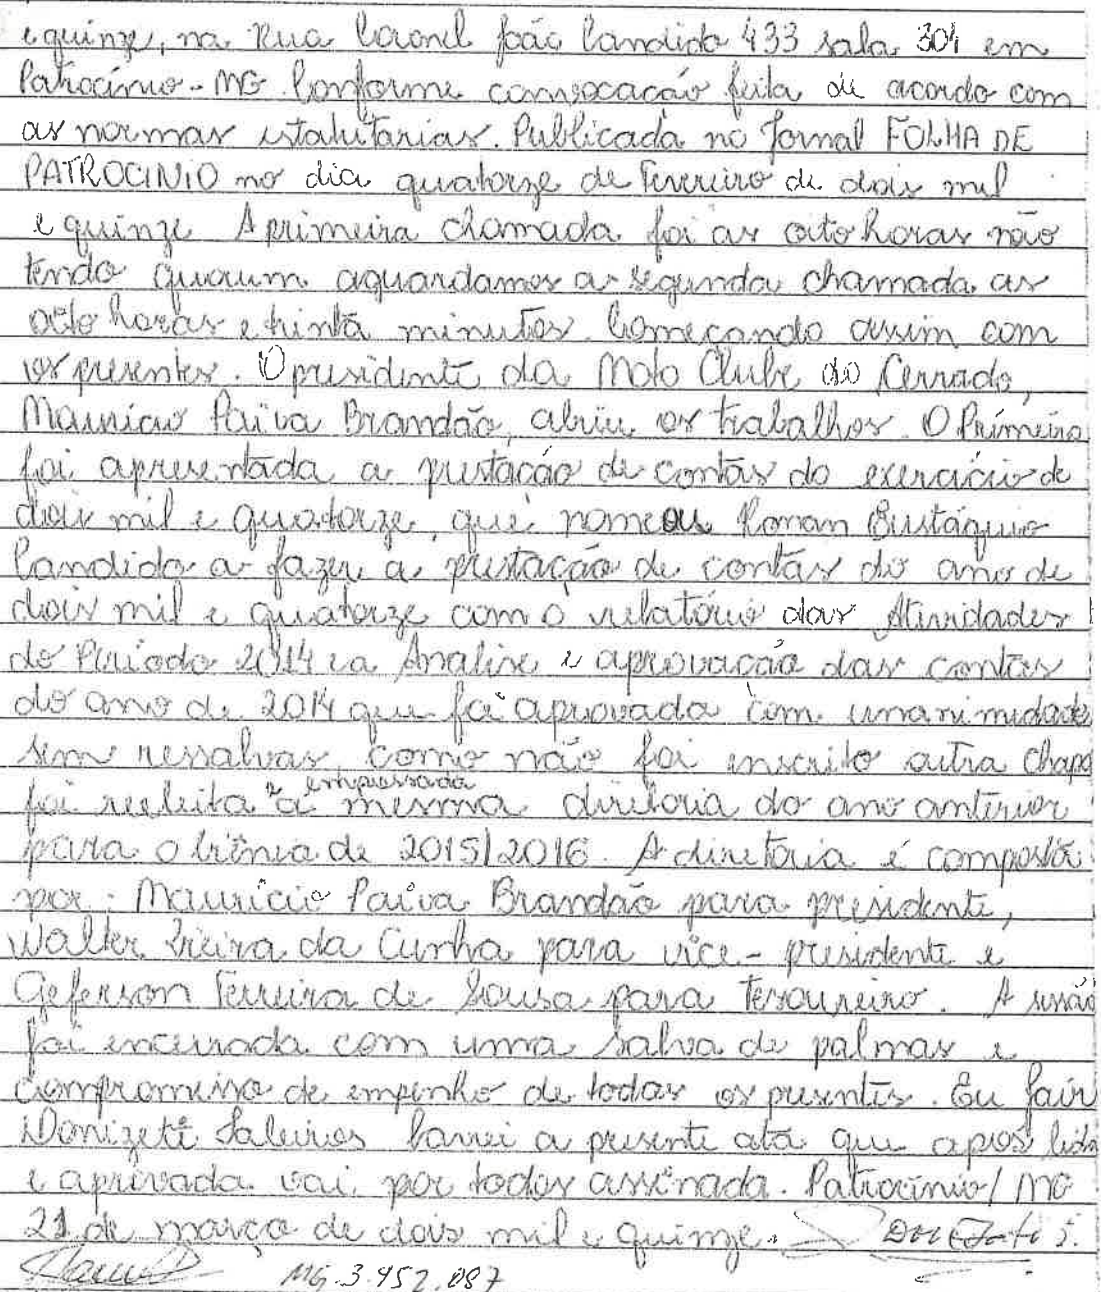 e quinze, na Rua Coronel João Candido 433 sala 304 em
Patrocínio - MG Conforme convocacão feita de acordo com
as normas estatutarias. Publicada no Jornal FOLHA DE
PATROCINIO no dia quatorze de Fevereiro de dois mil
e quinze A primeira chamada foi as oito horas não
tendo quorum aguardamos a segunda chamada as
oito horas e trinta minutos. Começando assim com
os presentes. O presidente da Moto Clube do Cerrado,
Maurício Paiva Brandão, abriu os trabalhos. O Primeiro
foi apresentada a prestação de contas do exercício de
dois mil e quatorze, que nomeou Ronan Eustáquio
Candido a fazer a prestação de contas do ano de
dois mil e quatorze com o relatório das Atividades
do Período 2014 e a Analise e aprovação das contas
do ano de 2014 que foi aprovada com unanimidade
sem ressalvas, como não foi inscrito outra Chapa
foi reeleita e empossada a mesma diretoria do ano anterior
para o biênio de 2015/2016. A diretoria é composta
por: Maurício Paiva Brandão para presidente,
Walter Vieira da Cunha para vice-presidente e
Geferson Ferreira de Sousa para Tesoureiro. A sessão
foi encerrada com uma salva de palmas e
compromisso de empenho de todos os presentes. Eu Jair
Donizete Saleiros lavrei a presente ata que após lida
e aprovada vai por todos assinada. Patrocínio / MG
21 de março de dois mil e quinze.
MG.3.952.087